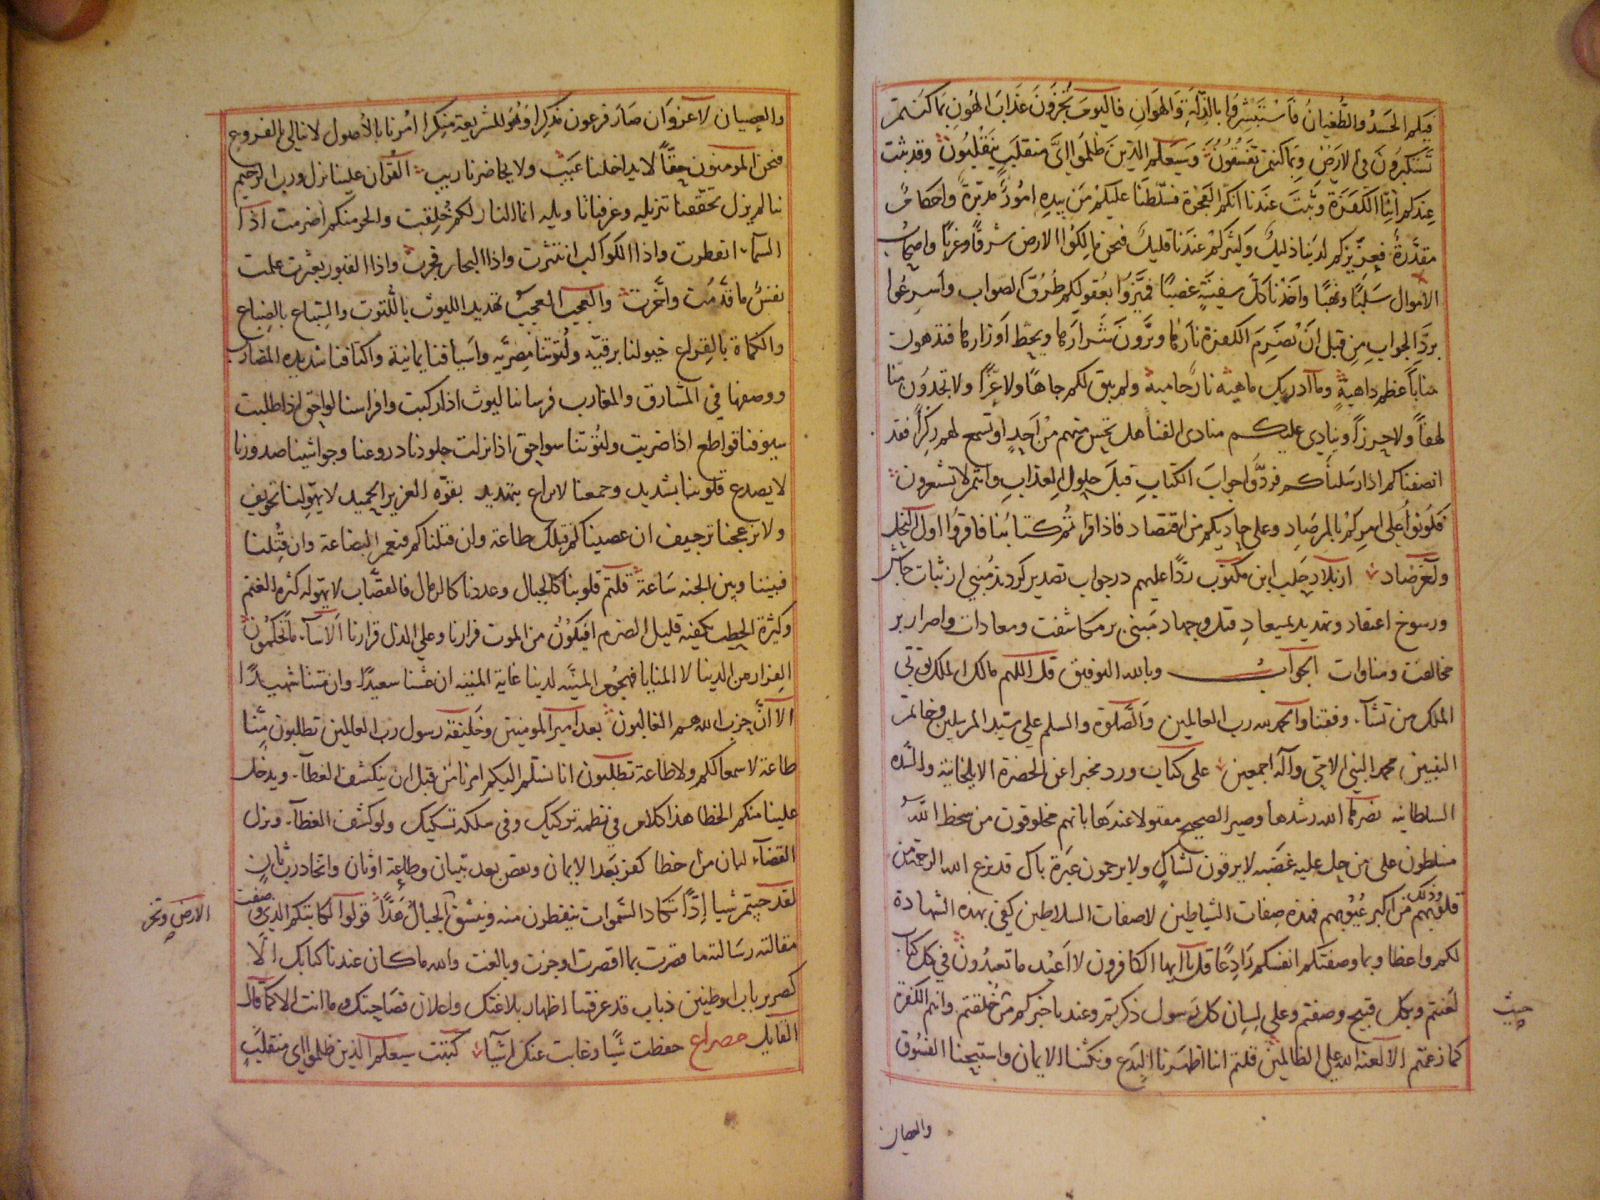 قبلكم الحسد والطغيان فاستبشروا بالذلة والهوان فاليوم تجزون عذاب الهون بما كنتم
تستكبرون في الارض وبما كنتم تفسقون وسيعلم الذين ظلموا اي منقلب ينقلبون وقد ثبت
عندكم انا الكفرة وثبت عندنا انكم الفجرة فسلطنا عليكم من بيده امور مدبرة واحكام
مقدرة فعزيزكم لدينا ذليل وكثيركم عندنا قليل فنحن مالكوا الارض شرقا وغربا واصحاب
الاموال سلبا ونهبا واخذنا كل سفينة غصبا فميزوا بعقولكم طرق الصواب واسرعوا
برد الجواب من قبل ان تضرم الكفرة نارها وترون شرارها ويحط اوزارها فتدهون
منا باعظم داهية وما ادريك ماهيه نار حامية ولم يبق لكم جاها ولا عزا ولا تجدون منا
كهفا ولا حرزا وينادي عليكم منادي الفنا هل تحس منهم من احد او تسمع لهم ركزا فقد
انصفناكم اذ ارسلناكم فردوا جواب الكتاب قبل حلول العذاب وانتم لا تشعرون
فكونوا على امركم بالمرصاد وعلى حاديكم من اقتصاد فاذا قراتم كتابنا فاقروا اول النحل
واخر صاد از بلاد حلب اين مكتوب ردا عليهم در جواب تصدير كردند مبني از ثبات جاش
ورسوخ اعتقاد وتهديد بميعاد قتل وجهاد مبنى بر مكاشفت ومعادات واصرار بر
مخالفت ومناوات الجواب وبالله التوفيق قل اللهم مالك الملك تؤتي
الملك من تشآء وفقنا والحمد لله رب العالمين والصلوة والسلم على سيد المرسلين وخاتم
النبيين محمد النبي الامي وآله اجمعين على كتاب ورد مخبرا عن الحضرة الايلخانية والسده
السلطانيه نصرها الله رشدها وصير الصحيح مقبولا عندها بانهم مخلوقون من سخط الله
مسلطون على من حل عليه غضبه لا يرقون لشاك ولا يرحمون عبرة باك قد نزع الله الرحمة من
قلوبهم وذلك من اكبر عيوبهم فهذه صفات الشياطين لا صفات السلاطين كفى بهذه الشهادة
لكم واعظا وبما وصفتكم انفسكم رادعا قل يا ايها الكافرون لا اعبد ما تعبدون في كل كتاب
لعنتم وبكل قبيح وصفتم وعلى لسان كل رسول ذكرتم وعندنا خبركم من حيث خلقتم وانتم الكفرة
كما زعمتم الا لعنة الله على الظالمين قلتم انا اظهرنا البدع ونكثنا الايمان واستبحنا الفسوق
حيث
والعصيان
والعصيان لا غرو ان صار فرعون مذكرا وهو للشريعة منكرا امرنا بالاصول لا نبالي بالفروع
فنحن المومنون حقا لا يداخلنا عيب ولا يخامرنا ريب القرآن علينا نزل ورب الرحيم
بنا لم يزل تحققنا تنزيله وعرفنا تاويله انما النار لكم خلقت والجو منكم اضرمت اذا
السماء انفطرت واذا الكواكب انتثرت واذا البحار فجرت واذا القبور بعثرت علمت
نفس ما قدمت واخرت والعجب العجيب تهديد الليوث باللتوت والسباع بالضباع
والكماة بالقراع خيولنا برقيه ولتوتنا مصريه واسيافنا يمانية واكتافنا شديدة المضارب
ووصفها في المشارق والمغارب فرساننا ليوث اذا ركبت وافراسنا لواحق اذا طلبت
سيوفنا قواطع اذا ضربت ولتوتنا سواحق اذا نزلت جلودنا دروعنا وجواشنا صدورنا
لا يصدع قلوبنا بشديد وجمعنا لا يراع بتهديد بقوه العزيز الحميد لا يهولنا تخويف
ولا يزعجنا ترجيف ان عصيناكم فتلك طاعة وان قتلناكم فنعم البضاعة وان قتلنا
فبيننا وبين الجنه ساعة قلتم قلوبنا كالجبال وعددنا كالرمال فالقصاب لا يهوله كثره الغنم
وكثرة الحطب يكفيه قليل الضرم افيكون من الموت فرارنا وعلى الذل قرارنا الا ساء ما يحكمون
الفرار من الدنيا لا المنايا فهجوم المنيه لدينا غاية المنيه ان عشنا سعيدا وان متنا شهيدا
الا ان حزب الله هم الغالبون بعد امير المومنين وخليفة رسول رب العالمين تطلبون منا
طاعة لا سمعا لكم ولا طاعة تطلبون انا نسلم اليكم امرنا من قبل ان ينكشف الغطآء ويدخل
علينا منكم الخطا هذا كلام في نظمه تركيك وفي سلكه تسكيك ولو كشف الغطآء ونزل
القضآء لبان من خطا كفر بعد الايمان ونقض بعد تبيان وطاعة اوثان واتخاد رب ثان
لقد جيتم شيا ادا تكاد السموات يتفطرن منه وينشق الجبال هدا قولوا لكاتبكم الذي وصفت
الارض وتخر
مقالته رسالته ما قصرت بما اقصرت اوجزت وبالغت والله ما كان عندنا كتابك الا
كصرير باب او طنين ذباب قد عرفنا اظهار بلاغتك واعلان فصاحتك وما انت الا كما قال
القايل مصراع حفظت شيا وغابت عنك اشيا كتبت سيعلم الذين ظلموا اي منقلب